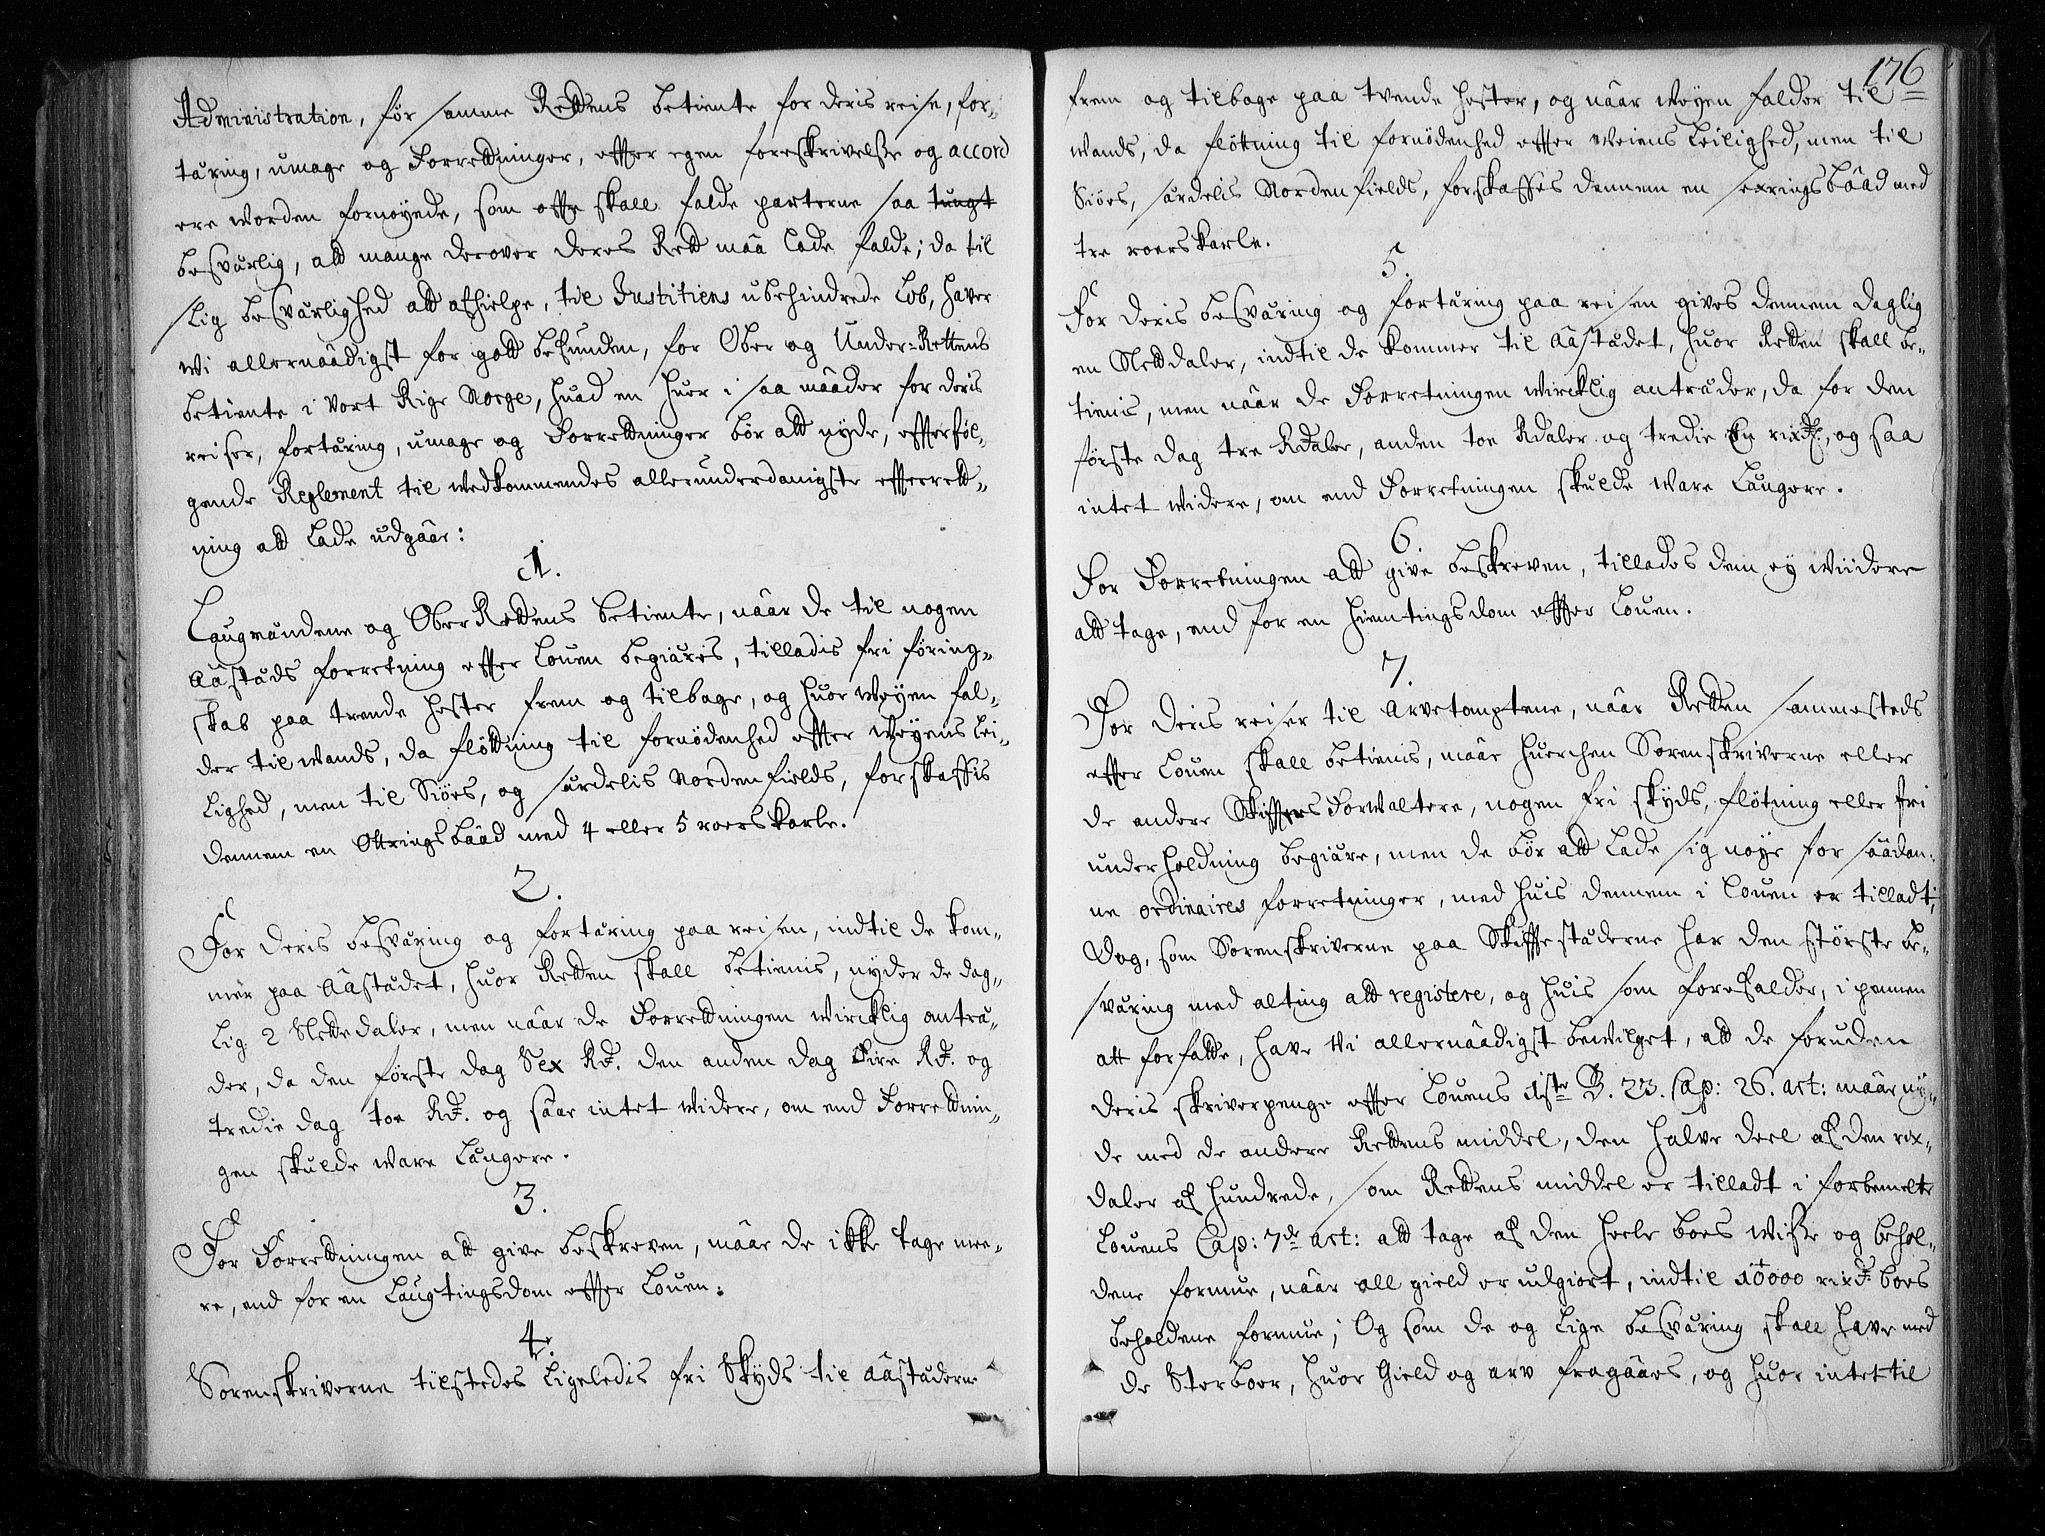 Administration, før samme Rettens betiente for deris reise, for-
tæring, umage og Forretninger, effter egen foreskrivelße og accord
ere worden fornøyede, som offte skall falde parterne saa tungt
besværlig, att mange derover deres Rett maa lade falde; da til
slig besværlighed att afhielpe, til Justitiens ubehindrede løb, haver
wi allernaadigst for gott befunden, for Ober og Under-Rettens
betiente i Vort Rige Norge, huad en huer i saa maader for deris
reiser, fortæring, umage og Forretninger bør att nyde, effterføl-
gende Reglement til wedkommendes allerunderdanigste effterrett-
ning att lade udgaar:
1.
Laugmændene og OberRettens betiente, naar de til nogen
Aastæds forretning effter Louen begiæris, tilladis fri føring-
skab paa tvende hester frem og tilbage, og huor Weyen fal-
der til wands, da fløttning til fornødenhed effter Weyens lei-
lighed, men til Siøes, og særdelis Nordenfields, forskaffis
dennem en Ottringsbaad med 4 eller 5 roerskarle.
2.
For deris besværing og fortæring paa reisen, indtil de kom-
mer paa Aastædet, huor Retten skall betienis, nyder de dag-
lig 2 Slettedaler, men naar de Forretningen wircklig antræ-
der, da den første dag Sex Rd. den anden dag Fire Rd. og
tredie dag toe Rd. og saa intet widere, om end Forretnin-
gen skulde ware længere.
3.
For Forretningen att give beskreven, maa de ikke tage mee-
re, end for en Laugtingsdom effter Louen.
4.
Sorenskriverne tilstedes ligeledis fri Skyds til Aastæderne
176
frem og tilbage paa tvende hester, og naar Weyen falder til
wands, da fløttning til fornødenhed effter Weiens leilighed, men til
Siøes, særdelis Nordenfields, forskaffes dennem en sexringsbaad med
tre roerskarle.
5.
For deris besværing og fortæring paa reisen gives dennem daglig
en Slettdaler, indtil de kommer til Aastædet, huor Retten skall be-
tienis, men naar de Forretningen wircklig antræder, da for den
første dag tre Rdaler, anden toe Rdaler og tredie En rixd:, og saa
intet widere, om end Forretningen skulde ware længere.
6.
For Forretningen att give beskreven, tillades dem ey wiidere
att tage, end for en hiemtingsdom effter Louen.
7.
For deris reiser til Arvetomptene, naar Retten sammesteds
effter Louen skall betienis, maa huerchen Sorenskriverne eller
de andre SkiffttesForwaltere, nogen fri skyds, fløtning eller fri
underholdning begiære, men de bør att lade sig nøye for saadan-
ne ordinaires forretninger, med huis dennem i Louen er tilladt;
Dog, som Sorenskriverne paa Skifftestæderne har den største be-
sværing med alting att registere, og huis som forefalder, i pennen
att forfatte, have Wi allernaadigst bewilget, att de foruden
deris skriverpenge effter Louens 1ste B. 23. Cap: 26. art: maa ny-
de med de andre Rettens middel, den halve deel af den rix-
daler af hundrede, som Rettens middel er tilladt i forbemelte
Louens Cap: 7de art: att tage af den heele boes wisse og behol-
dene formue, naar all gield er udgiort, indtil 10000 rixd: boes
beholdene formue; Og som de og lige besværing skall have med
de Sterboer, huor Gield og arv fragaaes, og huor intet til